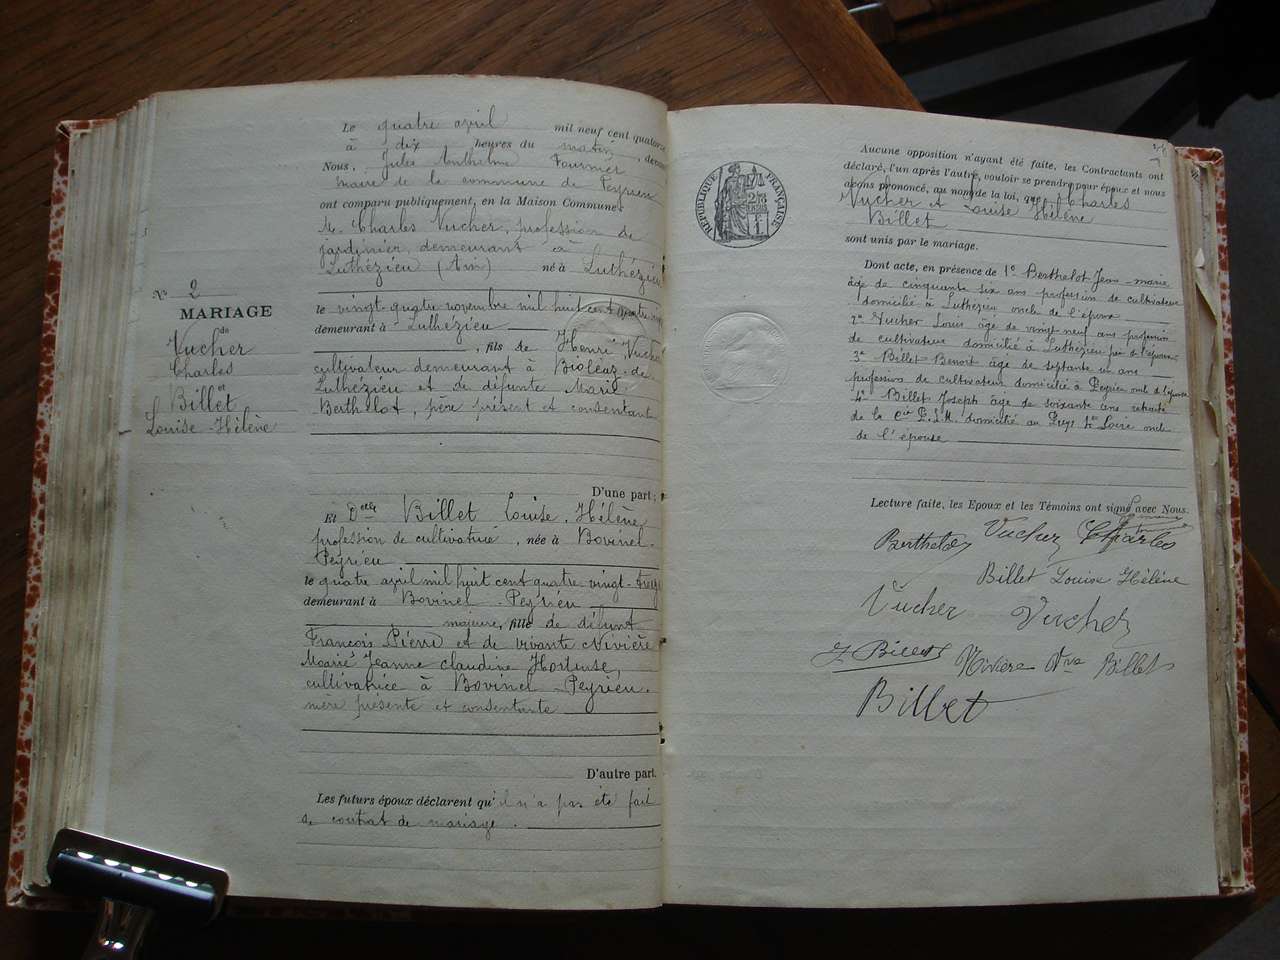 Le quatre avril mil neuf cent quatorze
à dix heures du matin, devant
Nous, Jules Anthelme Fournier
maire de la commune de Peyrieu
ont comparu publiquement, en la Maison Commune:
M. Charles Vucher, profession de
jardinier, demeurant à
Luthézieu (Ain) né à Luthézieu
le vingt-quatre novembre mil huit cent quatre vingt
demeurant à Luthézieu
, fils de Henri Vucher
cultivateur demeurant à Bioléaz-de-
Luthézieu et de défunte Marie
Berthelot, père présent et consentant
No 2
MARIAGE
de
Vucher
Charles
et
Billet
Louise-Hélène
D'une part;
Et Delle Billet Louise-Hélène
profession de cultivatrice, née à Bovinel-
Peyrieu
le quatre avril mil huit cent quatre vingt-treize
demeurant à Bovinel-Peyrieu
majeure, fille de défunt
François Pierre et de vivante Nivière
Marie Jeanne claudine Hortense,
cultivatrice à Bovinel-Peyrieu.
mère présente et consentante
D'autre part.
Les futurs époux déclarent qu'il n'a pas été fait
de contrat de mariage.
RÉPUBLIQUE FRANÇAISE
Aucune opposition n'ayant été faite, les Contractants ont
déclaré, l'un après l'autre, vouloir se prendre pour époux et nous
avons prononcé, au nom de la loi, que Charles
Vucher et Louise Hélène
Billet
sont unis par le mariage.
Dont acte, en présence de 1o Berthelot Jean-marie
âge de cinquante six ans profession de cultivateur
domicilié à Luthézieu oncle de l'époux
2o Vucher Louis âge de vingt neuf ans profession
de cultivateur domicilié à Luthézieu de l'époux
3o Billet Benoit âge de septante un ans
profession de cultivateur domicilié à Peyrieu oncle de l'épouse
4o Billet Joseph âge de soixante ans retraité
de la Cie P.L.M. domicilié au Puys Hte Loire oncle
de l'épouse
Lecture faite, les Epoux et les Témoins ont signé avec Nous.
Berthelot Vucher Charles
Billet Louise Hélène
Vucher Vucher
J Billet Nivière Vve Billet
Billet